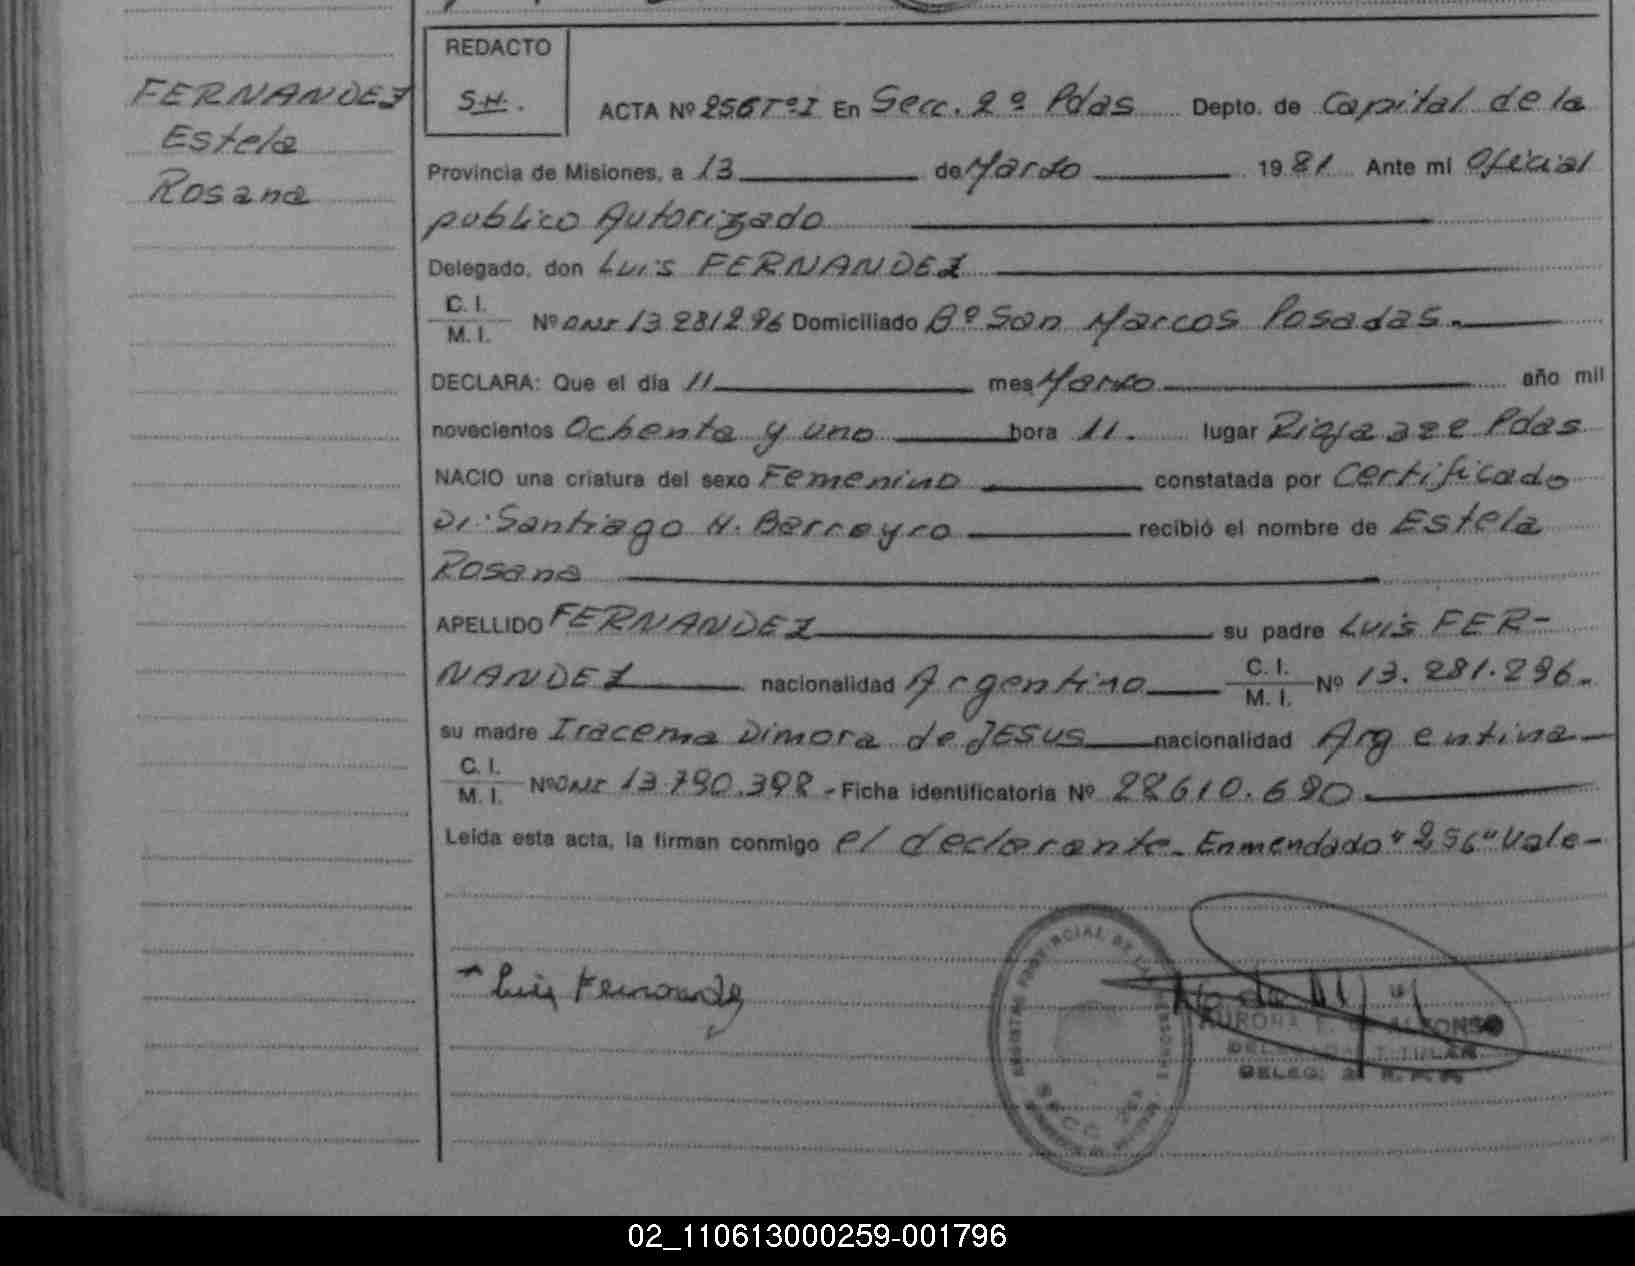 FERNANDEZ
Estela
Rosana
REDACTO
S.H.
ACTA Nº 256 Tº I En Secc. 2º Pdas Depto. de Capital de la
Provincia de Misiones, a 13 de Marzo 1981 Ante mi Oficial
publico Autorizado
Delegado, don Luis FERNANDEZ
C. I.
M. I. Nº DNI 13 281296 Domiciliado Bº San Marcos Posadas.
DECLARA: Que el día 11 mes Marzo año mil
novecientos Ochenta y uno hora 11. lugar Rioja 322 Pdas
NACIO una criatura del sexo Femenino constatada por Certificado
Dr. Santiago H. Barreyro recibió el nombre de Estela
Rosana
APELLIDO FERNANDEZ su padre Luis FER-
NANDEZ nacionalidad Argentino C. I. M. I. Nº 13.281.296.
su madre Iracema Dimora de JESUS nacionalidad Argentina
C. I.
M. I. Nº DNI 13.790.398 - Ficha identificatoria Nº 28610.690
Leída esta acta, la firman conmigo el declarante. Enmendado "256" Vale-
Luis Fernandez
AURORA ALFONSO
TITULAR
DELEG. 2
SECC. 2da
02_110613000259-001796